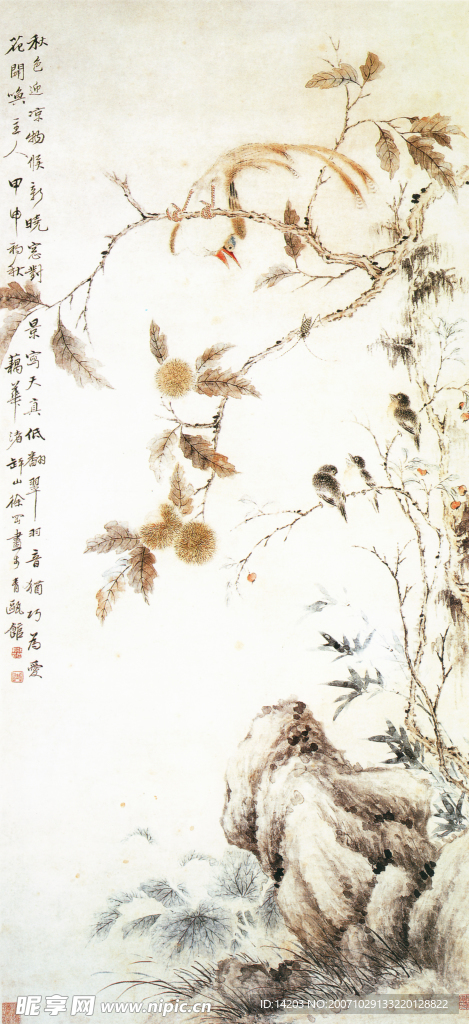 秋色迎凉物候新晓窓對景寫天真低翻翠羽音猶巧為愛
花開喚主人 甲申初秋 藕華渚 罅山徐 畫于青甌館
昵享网 www.nipic.cn
ID:14203 NO:20071029133220128822